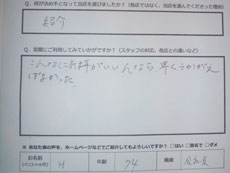 Q. 何が決め手となって当店を選びましたか?(他店ではなく、当店を選んでくださった理由)
紹介
Q. 実際にご利用してみていかがですか?(スタッフの対応、他店との違いなど)
こんなに気持がいいんなら、早くうかがえ
ばよかった。
※ あなた様の声を、ホームページなどでご紹介してもよろしいですか? □はい □匿名で □ダメ
お名前
(イニシャル可)
H
年齢
74
職業
会社員